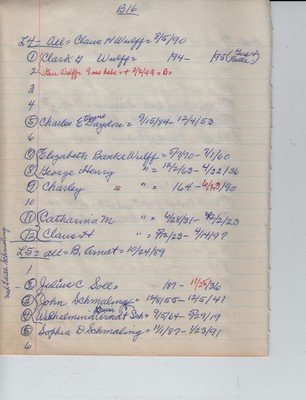 B16
L4 = all = Claus H Wulff = 8/5/90
① Clark G Wulff = 194- - 195
2
3
4
⑤ Charles Eugene Gaydon = 9/15/94 - 12/4/53
6
⑦ Elizabeth Banke Wulff = 5/9/90 - 9/1/60
⑧ George Henry " = 12/2/63 - 4/22/36
⑨ Charley S " = 164 - 4/23/90
10
⑪ Catharina M " = 4/28/31 - 2/2/23
⑫ Claus H " = 9/12/23 - 4/14/97
L5 = all = B. Arndt = 10/24/89
1
② Julius C Soll = 187 - 11/25/36
③ John Schmaling = 12/8/55 - 12/5/41
④ Wilhelmina Arndt Sch = 9/5/64 - 5/29/19
⑤ Sophia D Schmaling = 11/1/87 - 1/23/91
6